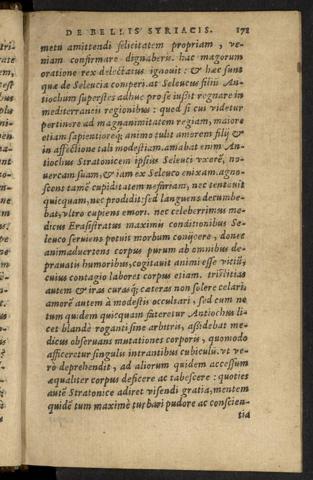 DE BELLIS SYRIACIS. 172
metu amittendi felicitatem propriam, ve-
niam confirmare dignaberis. hac magorum
oratione rex delectatus ignouit: & hæc sunt
quæ de Seleucia comperi. at Seleucus filiũ An-
tiochum superstes adhuc pro se iussit regnare in
mediterraneis regionibus: quod si cui videtur
pertinere ad magnanimitatem regiam, maiore
etiam sapientioreq; animo tulit amorem filij &
in affectione tali modestiam. amabat enim An-
tiochus Stratonicem ipsius Seleuci vxorẽ, no-
uercam suam, & iam ex Seleuco enixam. agno-
scens tamẽ cupiditatem nefariam, nec tentauit
quicquam, nec prodidit: sed languens decumbe-
bat, vltro cupiens emori. nec celeberrimus me-
dicus Erasistratus maximis conditionibus Se-
leuco seruiens potuit morbum conijcere, donec
animaduertens corpus purum ab omnibus de-
prauatis humoribus, cogitauit animi esse vitiũ,
cuius contagio laboret corpus etiam. tristitias
autem & iras curasq; cæteras non solere celari,
amorẽ autem à modestis occultari, sed cum ne
tum quidem quicquam fateretur Antiochus li-
cet blandè roganti sine arbitris, assidebat me-
dicus obseruans mutationes corporis, quomodo
afficeretur singulis intrantibus cubiculũ. vt ve-
rò deprehendit, ad aliorum quidem accessum
æqualiter corpus deficere ac tabescere: quoties
autẽ Stratonice adiret visendi gratia, mentem
quidẽ tum maximè turbari pudore ac conscien-
tia